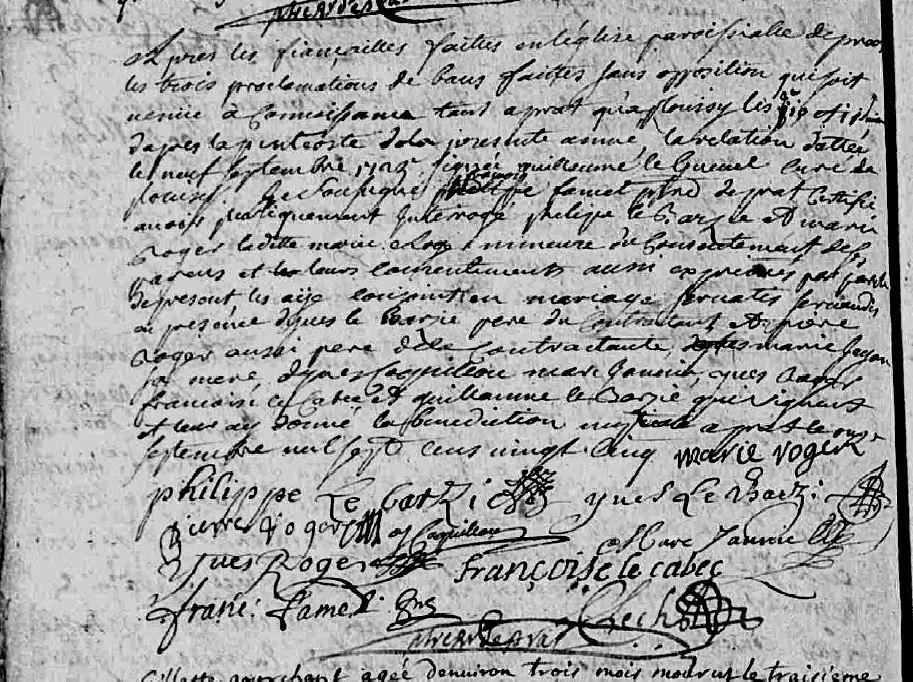 Apres les fiançailles faittes en léglise paroissialle de prat
les trois proclamations de bans faittes sans opposition qui soit
venüe à Connoissance tant a prat qu'a plouisy les
dapres la pintecoste de la presente année, la relation dattée
le neuf septembre 1725 signée guillaume le Gueuel Curé de
plouisy. Je Soussigné famel de prat Certifie
avoir publiquement Interrogé philipe le Barzic et marie
Roger laditte marie Roger mineure du Consentement de ses
parens et leurs consentements aussi exprimés par parolle
de present les aije conjoint en mariage servatis servandis
en presence dyves le barzic pere du Contractant et pierre
Roger aussi pere de la Contractante, marie
sa mere, Coquileau marc Jannic, yves Roger
francoise le Cabec et guillaume le Barzic qui signent
et leur ay donné la benediction nuptiale a prat le onze
septembre mil sept cens vingt Cinq marie roger
philippe Le barzic yves Le Barzic
pierre roger Coquileau
Marc Jannic
Yves Roger françoise le cabec
franc: famel
ptre de prat
agée denuiron trois mois mourut le traisieme